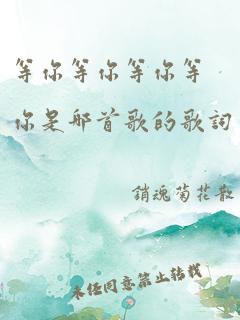 等你等你等你等
你是那首歌的歌詞
銷魂菊花散
未任同意禁止转载